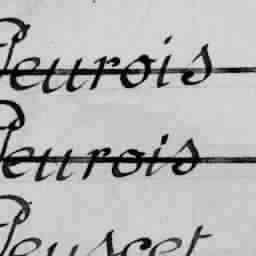 Pleurois
Pleurois
Pleuscet